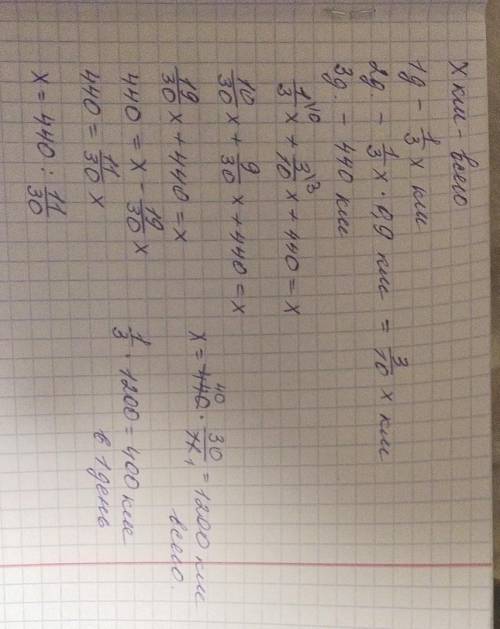 x км - всего
1д - 1/3 x км
2д. - 1/3 x · 0,9 км = 3/10 x км
3д. - 440 км
1/3\10 x + 3/10\3 x + 440 = x
10/30 x + 9/30 x + 440 = x
19/30 x + 440 = x
440 = x - 19/30 x
440 = 11/30 x
x = 440 : 11/30
x = 440 40 · 30/11 1 = 1200 км
всего.
1/3 · 1200 = 400 км
в 1 день